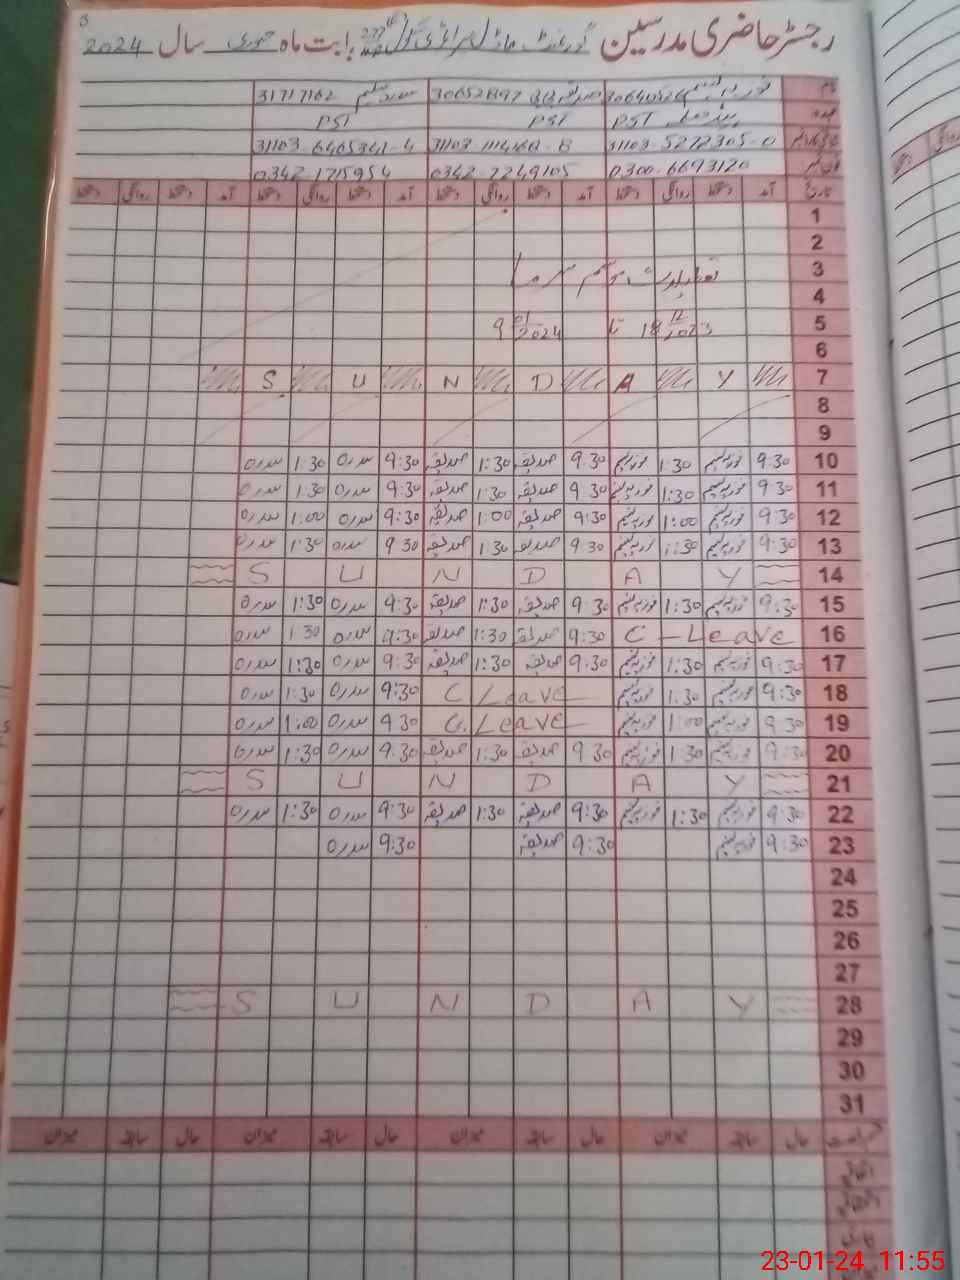 رجسٹر حاضری مدرسین گورنمنٹ ماڈل پرائمری سکول بابت ماہ جنوری سال 2024
نام 30640526 صدیقہ بی بی 30652897 سدرہ سلیم 31717162
عہدہ PST PST PST
31103-5272305-0 31103-6465341-4
فون نمبر 0300-6693120 0342-7249105 0342-1715954
تاریخ آمد دستخط روانگی دستخط آمد دستخط روانگی دستخط آمد دستخط روانگی دستخط آمد دستخط روانگی دستخط
1
2
3 تعطیلات موسم سرما
4
5 18 12/2023 تا 9 01/2024
6
7 S U N D A Y
8
9
10 9:30 فوزیہ نسیم 1:30 فوزیہ نسیم 9:30 صدیقہ 1:30 صدیقہ 9:30 سدرہ 1:30 سدرہ
11 9:30 فوزیہ نسیم 1:30 فوزیہ نسیم 9:30 صدیقہ 1:30 صدیقہ 9:30 سدرہ 1:30 سدرہ
12 9:30 فوزیہ نسیم 1:00 فوزیہ نسیم 9:30 صدیقہ 1:00 صدیقہ 9:30 سدرہ 1:00 سدرہ
13 9:30 فوزیہ نسیم 1:30 فوزیہ نسیم 9:30 صدیقہ 1:30 صدیقہ 9:30 سدرہ 1:30 سدرہ
14 S U N D A Y
15 9:30 فوزیہ نسیم 1:30 فوزیہ نسیم 9:30 صدیقہ 1:30 صدیقہ 9:30 سدرہ 1:30 سدرہ
16 C-Leave 9:30 صدیقہ 1:30 صدیقہ 9:30 سدرہ 1:30 سدرہ
17 9:30 فوزیہ نسیم 1:30 فوزیہ نسیم 9:30 صدیقہ 1:30 صدیقہ 9:30 سدرہ 1:30 سدرہ
18 9:30 فوزیہ نسیم 1:30 فوزیہ نسیم C Leave 9:30 سدرہ 1:30 سدرہ
19 9:30 فوزیہ نسیم 1:00 فوزیہ نسیم C.Leave 9:30 سدرہ 1:00 سدرہ
20 9:30 فوزیہ نسیم 1:30 فوزیہ نسیم 9:30 صدیقہ 1:30 صدیقہ 9:30 سدرہ 1:30 سدرہ
21 S U N D A Y
22 9:30 فوزیہ نسیم 1:30 فوزیہ نسیم 9:30 صدیقہ 1:30 صدیقہ 9:30 سدرہ 1:30 سدرہ
23 9:30 فوزیہ نسیم 9:30 صدیقہ 9:30 سدرہ
24
25
26
27
28 S U N D A Y
29
30
31
حال سابقہ میزان حال سابقہ میزان حال سابقہ میزان حال سابقہ میزان
اتفاقیہ
23-01-24 11:55